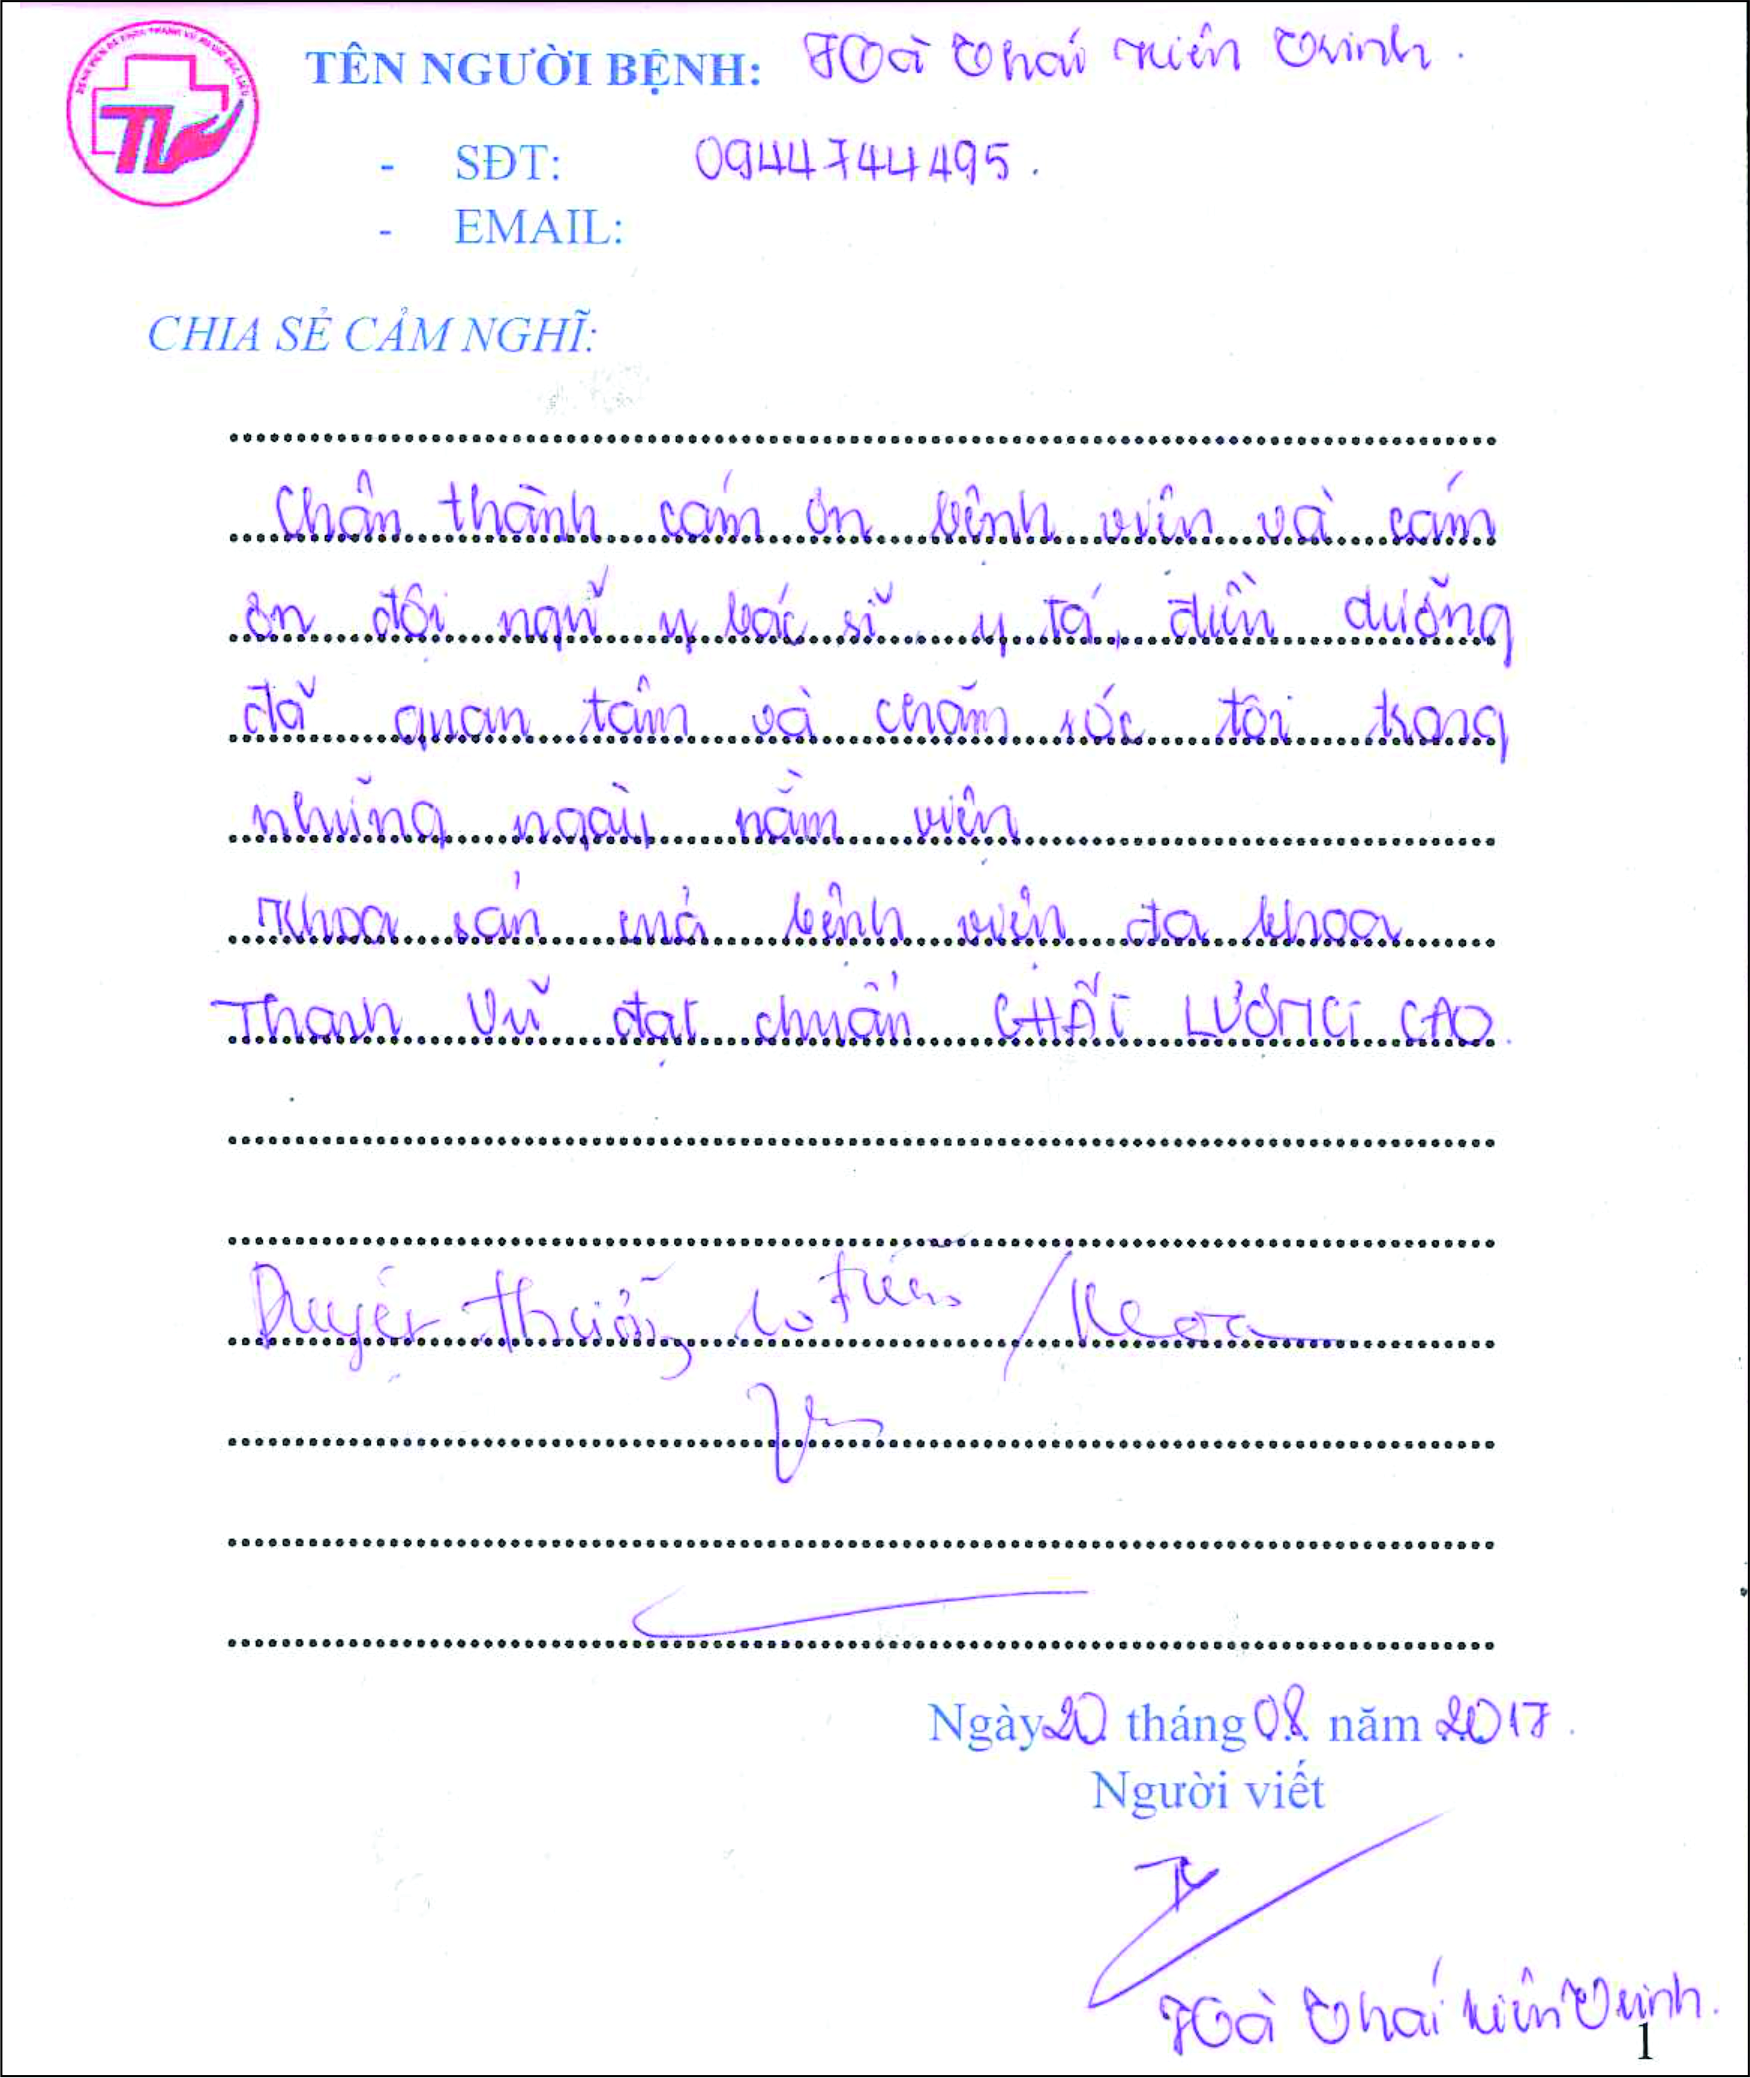 TÊN NGƯỜI BỆNH: Hà Thái Kiên Trinh.
- SĐT: 0944744495.
- EMAIL:
CHIA SẺ CẢM NGHĨ:
Chân thành cám ơn bệnh viện và cám
ơn đội ngũ y bác sĩ y tá, điều dưỡng
đã quan tâm và chăm sóc tôi trong
những ngày nằm viện
Khoa sản của bệnh viện đa khoa
Thanh Vũ đạt chuẩn CHẤT LƯỢNG CAO.
Duyệt thưởng / Khoa
Ngày 20 tháng 08 năm 2017.
Người viết
Hà Thái Kiên Trinh.
1